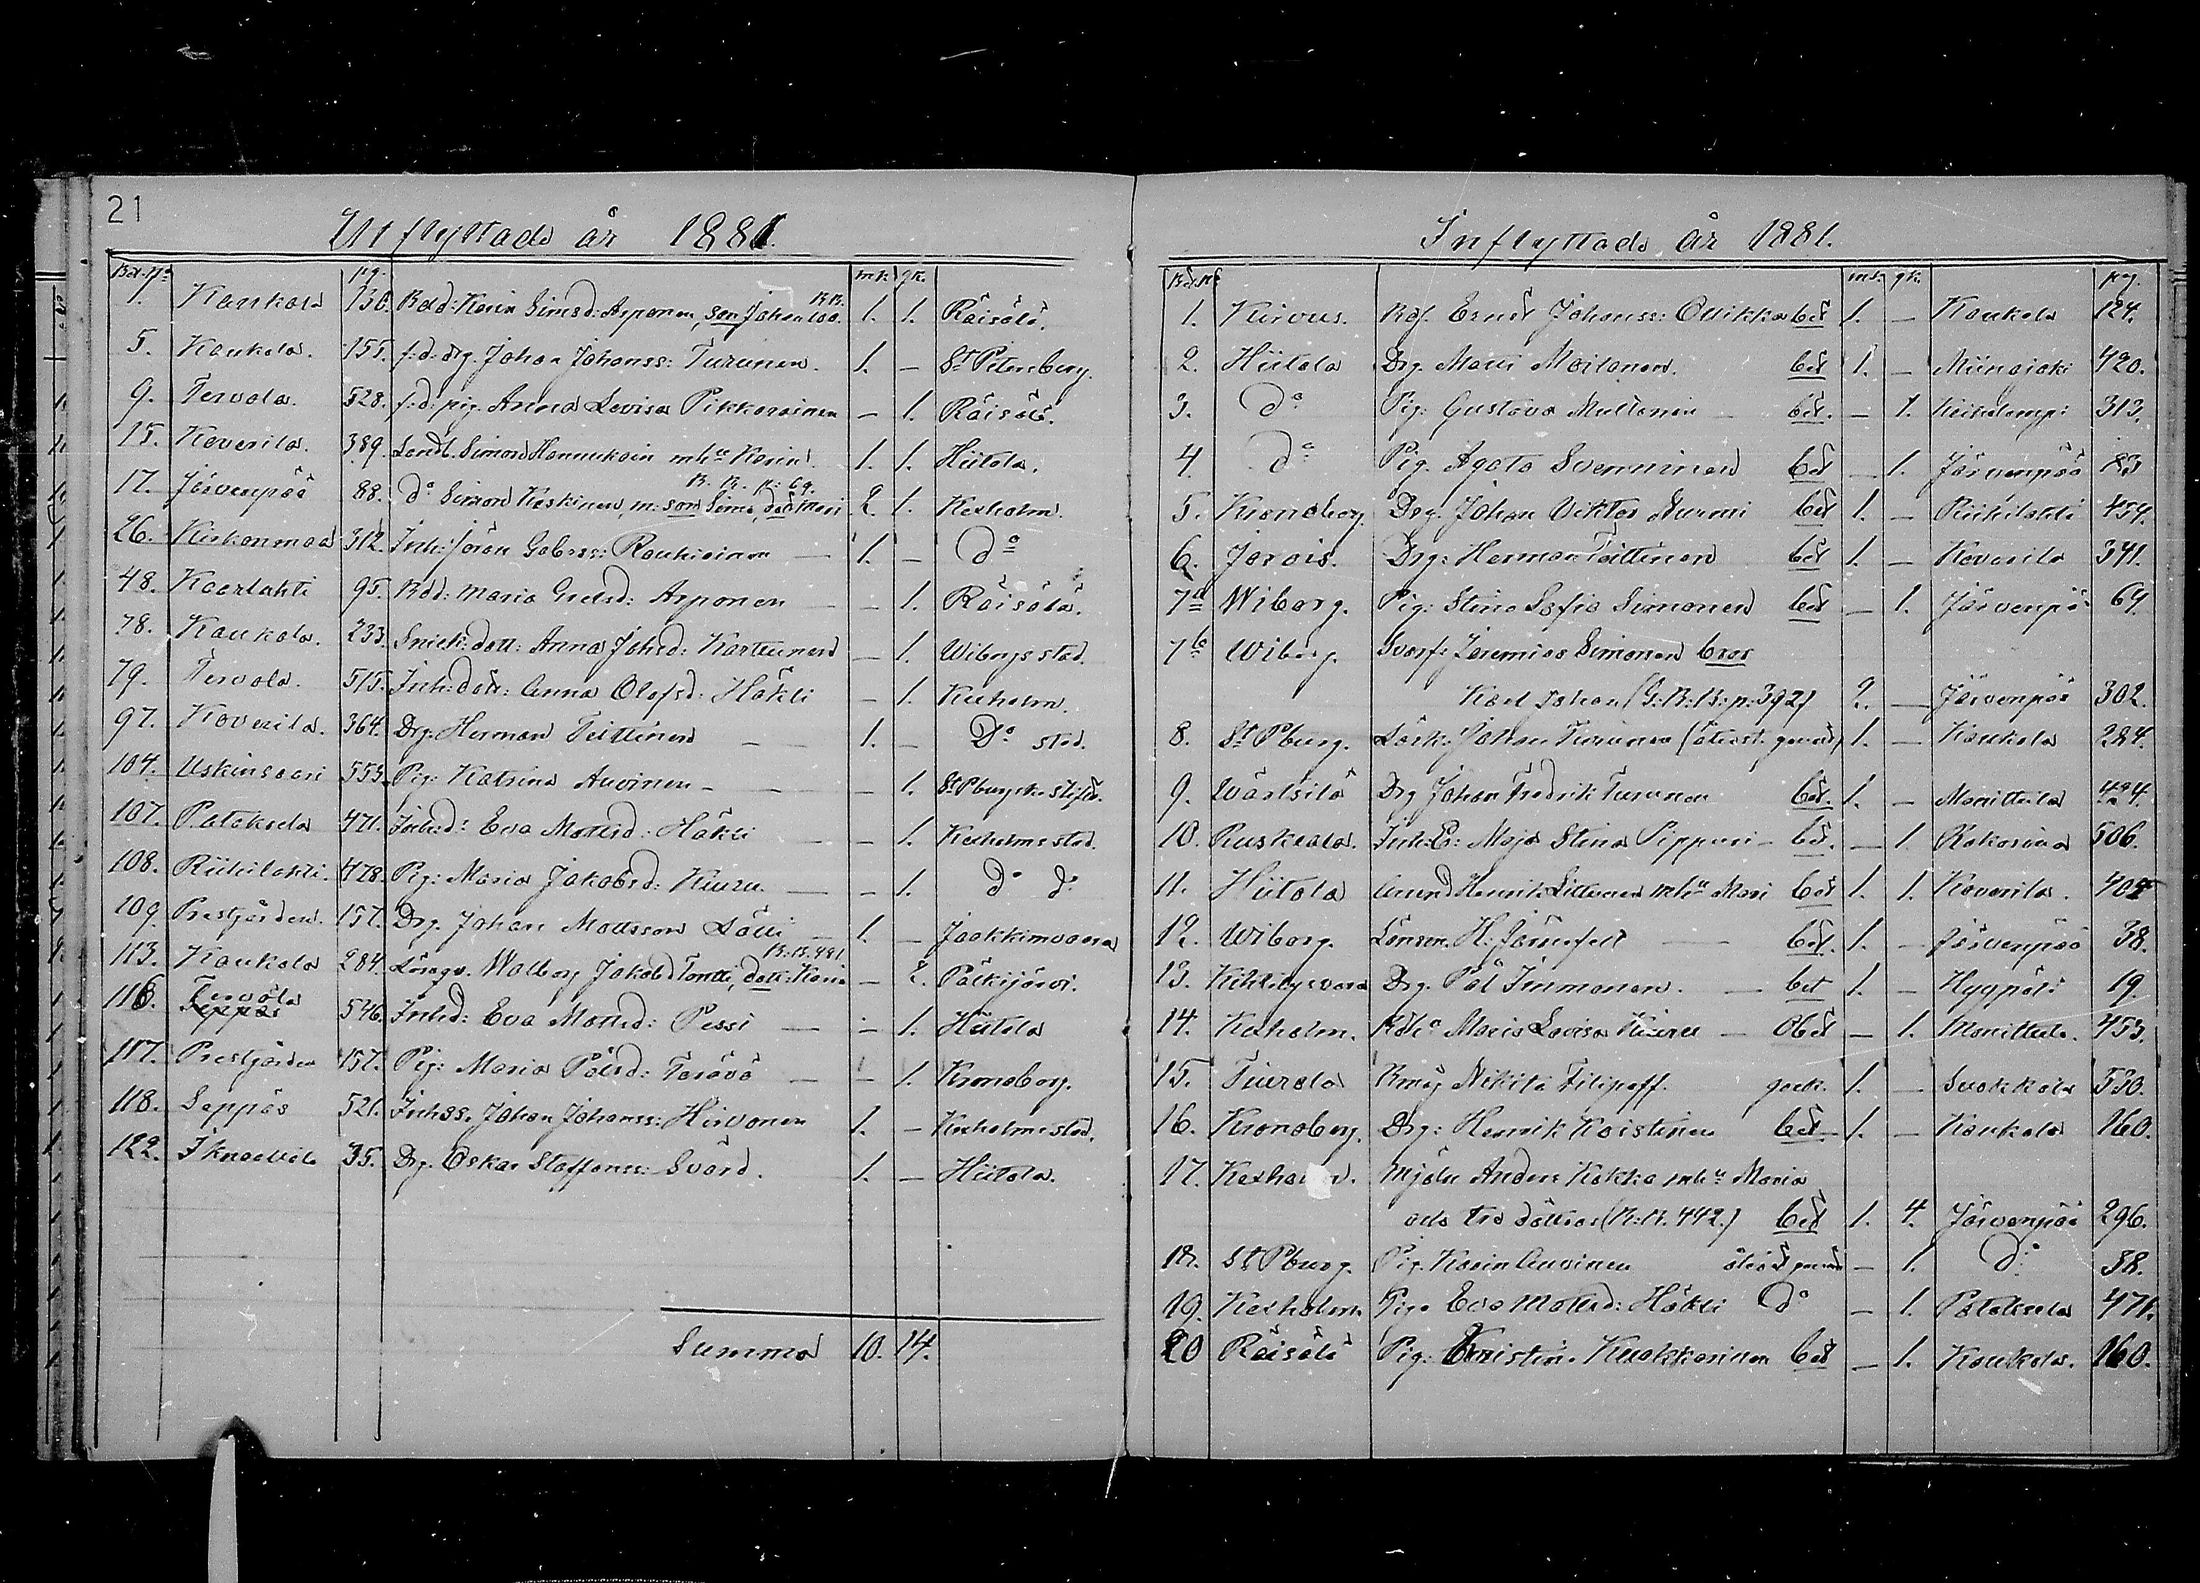 21
Utflyttade år 1881.
Bet. No pg. mk. qk.
1. Kaukola 130. Bdd: Karin Simsd: Asponen, son Johan 1. 1. Räisälä.
5. Kaukola. 155. f:d: drg. Johan Johanss: Turunen. 1. — St Petersburg.
9. Tervola. 528. f:d: pig. Anna Lovisa Pikkarainen — 1. Räisälä.
15. Koverila. 389. Landb. Simon Hannukain mhu Karin. 1. 1. Hiitola.
B. B. p: 69.
17. Järvenpää 88. do Simon Keskinen, m: son Simo, dott Mari 2 1. Kexholm.
26. Kirkonmaa 312. Inh: Jöran Gabrss: Rauhiainen — 1. — do
48. Kaarlahti 95. Bdd: Maria Grelsd: Asponen — — 1. Räisälä.
78. Kaukola. 233. Snick: dott: Anna Johsd: Karttunen — 1. Wiborgs stad.
79. Tervola. 515. Inh: dött: Anna Olofsd: Häkli — 1. Kexholm.
97. Koverila. 364. Drg. Herman Teittinen — — 1. — Do stad.
104. Uskinsaari 553. Pig: Katrina Auvinen — — — 1. St Pburgska stift.
107. Potoksela 471. Inh:d: Eva Mattsd: Häkli — — 1. Kexholms stad.
108. Riihilahti. 478. Pig: Maria Jakobsd: Kuuru — — 1. do do
109. Prestgården. 157. Drg. Johan Mattsson Lätti — 1. — Jaakkimvaara
B.B. 491.
113. Kaukola 284. Walborg Jakobsd Tontti, dott: Karin — 2. Pälkijärvi.
116. Tervola 546. Inh:d: Eva Mattsd: Pessi — — 1. Hiitola
117. Prestgården 157. Pig: Maria Pålsd: Tarävä — — 1. Kronoborg.
118. Seppäs 521. Inhss. Johan Johanss: Hirvonen 1. — Kexholms stad.
122. 35. Drg. Oskar Staffanss: Svärd. 1. — Hiitola.
Summa 10. 14.
Inflyttade år 1881.
Bet. No mk. qk. pag.
1. Kuivus. Bdf. Ernst Johanss: Ollikka bet 1. — Kaukola 124.
2. Hiitola Drg. Matti Moilanen. bet 1. — Miinajoki 420.
3. do Pig: Gustava Multanen — bet. — 1. 313.
4 do Pig. Agata Svenninen bet — 1. Järvenpää 83
5. Kronoborg. Drg. Johan Viktor Nurmi bet 1. — Riihilahti 454.
6. Jorois. Drg: Herman Teittinen bet 1. — Koverila 341.
7a Wiborg. Pig: Stina Sofia Simonen bet — 1. Järvenpä 64.
7b Wiborg. Svarf: Jeremias Simonen bror
Karl Johan (G:B:B: p: 392) 2. — Järvenpää 302.
8. St Pburg. Johan Turunen (återst. gen 1. — Kaukola 284.
9. Wärtsilä Drg Johan Fredrik Turunen bet. 1. — Monittula 424.
10. Ruskeala. Inh: E: Maja Stina Pippuri — bet. — 1. Kokonniva 506.
11. Hiitola Henrik Littunen mhu Mari bet 1. 1. Koverila. 404
12. Wiborg. Länsm. H. Järnefelt — bet. 1. — Järvenpää 38.
13. Drg. Pål Immonen. — bet 1. — Hyypölä 19.
14. Kexholm. Maria Lovisa Kuuru — Obet — 1. Monittula. 453.
15. Tiurala Nikita Filipoff. 1. — Suokkala 530.
16. Kronoborg. Drg: Henrik Koistinen bet 1. — Kaukola 160.
17. Kexholm. Mjöln Anders Kokko mhu Maria
och tre döttrar (B:B. 442.) bet 1. 4. Järvenpää 296.
18. St Pburg. Pig. Karin Auvinen — 1. do 38.
19. Kexholm. Piga Eva Mattsd: Häkli do — 1. Potoksela 471.
20 Räisälä Pig: Kristin. Kuokkarinen bet — 1. Kaukola. 160.